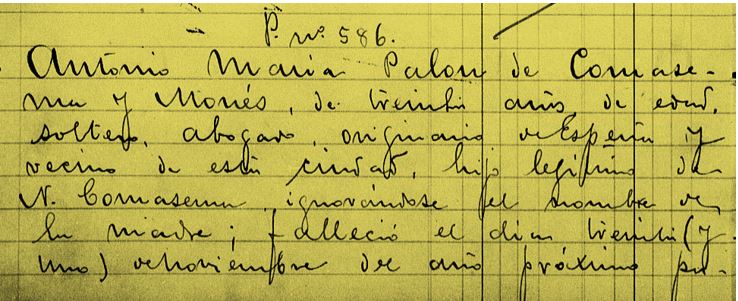 P. nº 586.
Antonio María Palou de Comase-
ma y Monés, de treinta años de edad,
soltero, abogado, originario de España y
vecino de esta ciudad, hijo legítimo de
N. Comasema, ignorándose el nombre de
la madre; falleció el día treinta (y
uno) de noviembre del año próximo pa-